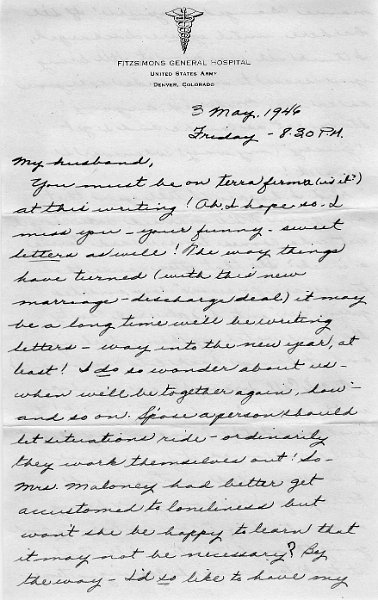 FITZSIMONS GENERAL HOSPITAL
UNITED STATES ARMY
DENVER, COLORADO
3 May, 1946
Friday - 8:30 P.M.
My husband,
You must be on terra firma (is it?)
at this writing! Oh, I hope so. I
miss you - your funny - sweet
letters as well! The way things
have turned (with this new
marriage - discharge deal) it may
be a long time we'll be writing
letters - way into the new year, at
least! I do so wonder about us -
when we'll be together again, how -
and so on. S'pose a person should
let situations ride - ordinarily
they work themselves out! So -
Mrs. Maloney had better get
accustomed to loneliness but
won't she be happy to learn that
it may not be necessary? By
the way - I'd so like to have my